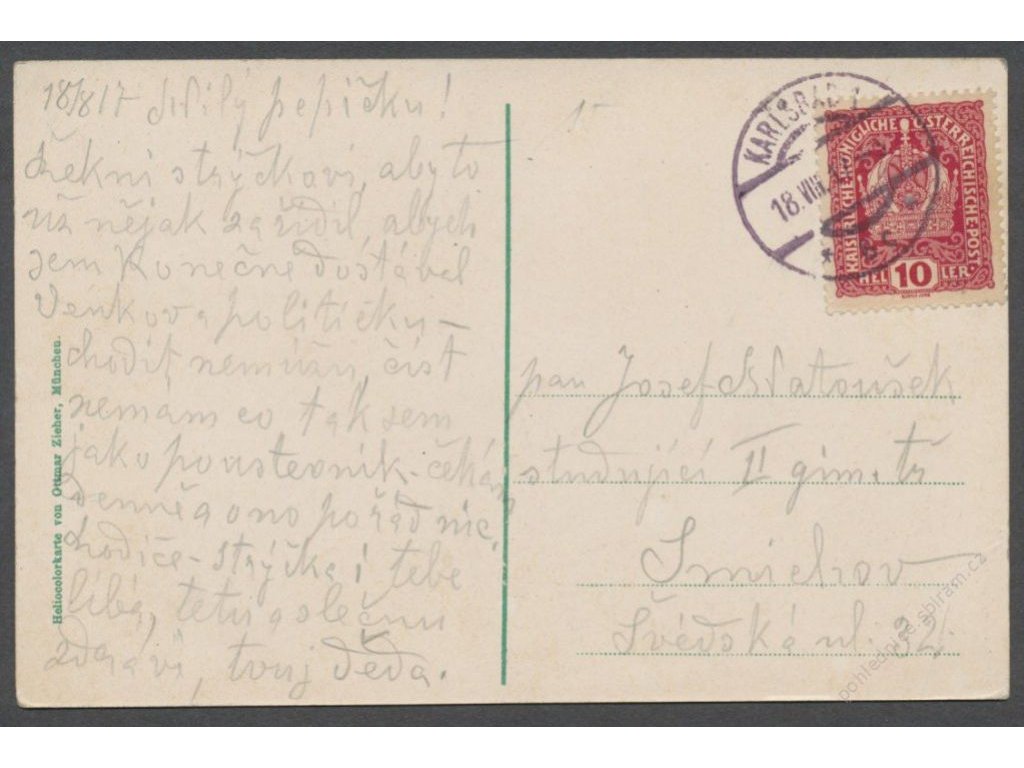 18/8 17 Milý pepíčku!
Řekni strýčkovi, aby to
už nějak zařídil, abych
sem Konečně dostával
Venkov a političku –
chodit nemůžu, číst
nemám co tak sem
jako poustevník. čekám
denně a ono pořád nic.
rodiče - strýčka i tebe
líbá, tetu a slečnu
zdraví, tvuj děda.
Heliocolorkarte von Ottmar Zieher, München.
KARLSBAD 1
18.VIII.
KAISERLICHE KÖNIGLICHE ÖSTERREICHISCHE POST.
HEL 10 LER
pan Josef Matoušek
studující II gim. tř
Smichov
Švédská ul. 32.
pohlednice.sbiram.cz